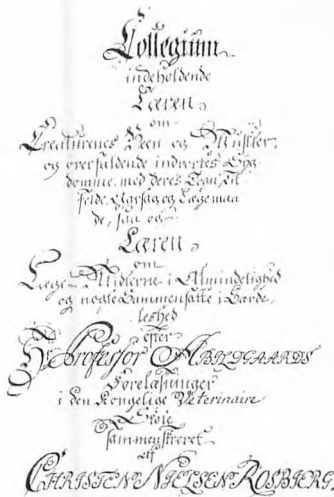 Collegium
indeholdende
Læren
om
Creaturenes Been og Muskler,
og overfaldende indvortes Syg-
domme, med deres Tegn, Til-
felde, Aarsag og Lægemaa-
de, saa og
Læren
om
Læge-Midlerne i Almindelighed
og nogle Sammensatte i Særde-
leshed
efter
Hr Professor ABILGAARDS
Forelæsninger
i den Kongelige Veterinaire
Skole
sammenskrevet
af
CHRISTEN NIELSEN ROSBIERG